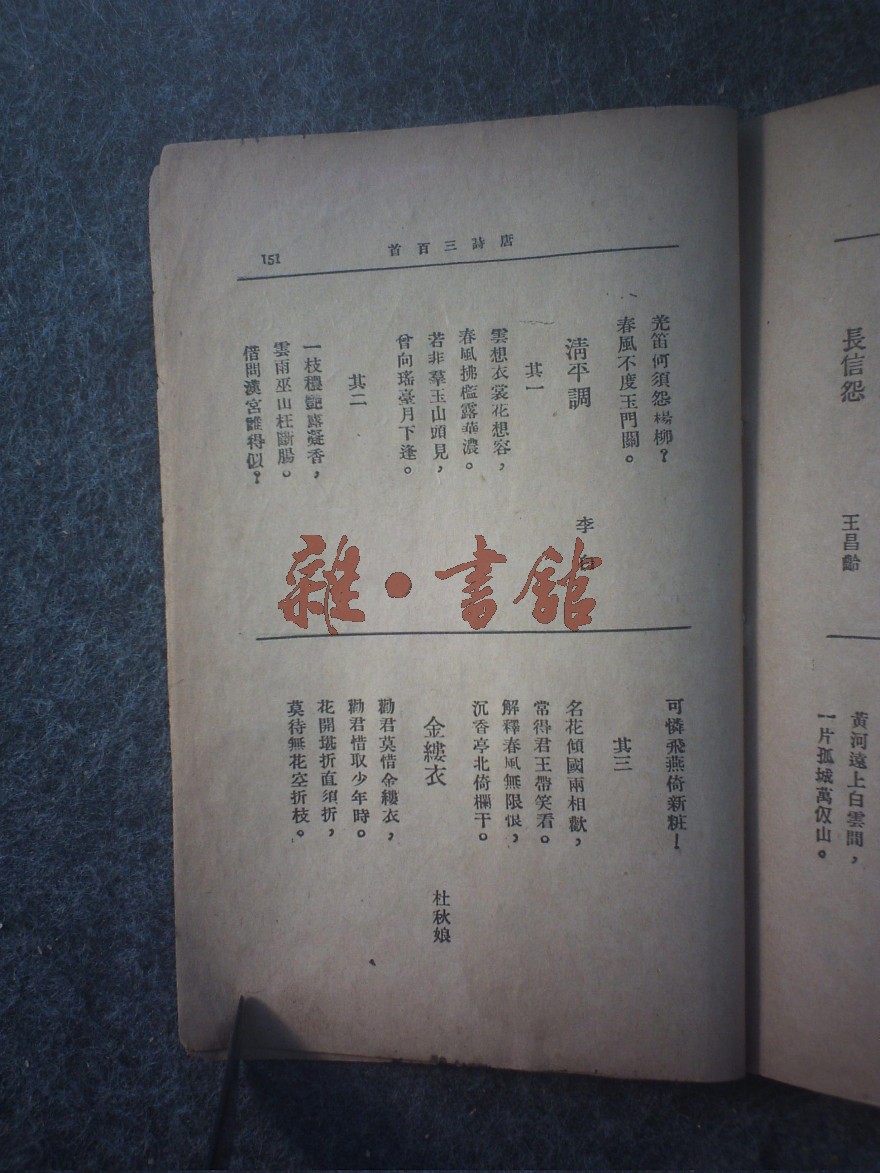 長信怨
王昌齡
黃河遠上白雲間，
一片孤城萬仞山。
唐詩三百首
151
羌笛何須怨楊柳？
春風不度玉門關。
清平調
李白
其一
雲想衣裳花想容，
春風拂檻露華濃。
若非羣玉山頭見，
曾向瑤臺月下逢。
其二
一枝穠艷露凝香，
雲雨巫山枉斷腸。
借問漢宮誰得似？
可憐飛燕倚新粧！
其三
名花傾國兩相歡，
常得君王帶笑看。
解釋春風無限恨，
沉香亭北倚欄干。
金縷衣
杜秋娘
勸君莫惜金縷衣，
勸君惜取少年時。
花開堪折直須折，
莫待無花空折枝。
雜·書館